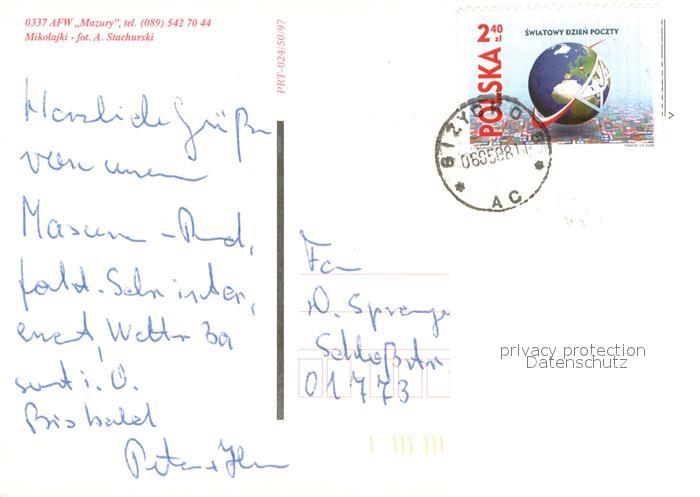 0337 AFW „Mazury”, tel. (089) 542 70 44
Mikolajki - fot. A. Stachurski
PRT-024/50/97
2 40 zł
ŚWIATOWY DZIEŃ POCZTY
POLSKA
GIŻYCKO
060508
AC
Herzliche Grüße
von unserer
Masuren-Rad,
fahrt. Sehr inter,
essant, Wetter
sonst i. O.
Bis bald
Peter +
Fam
D. Sprenge
Schloßstr
01773
privacy protection
Datenschutz